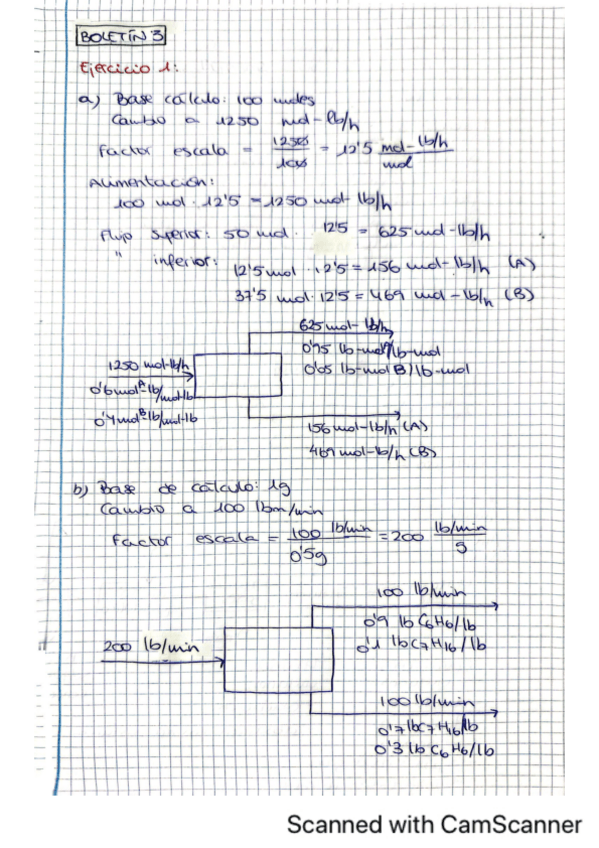 BOLETÍN 3
Ejercicio 1:
a) Base cálculo: 100 moles
Cambio a 1250 mol-lb/h
Factor escala = 1250/100 = 12'5 mol-lb/h / mol
Alimentación:
100 mol · 12'5 = 1250 mol-lb/h
Flujo superior: 50 mol · 12'5 = 625 mol-lb/h
" inferior: 12'5 mol · 12'5 = 156 mol-lb/h (A)
37'5 mol · 12'5 = 469 mol-lb/h (B)
625 mol-lb/h
1250 mol-lb/h
0'95 lb-mol A/lb-mol
0'6 mol A-lb/mol-lb
0'05 lb-mol B/lb-mol
0'4 mol B-lb/mol-lb
156 mol-lb/h (A)
469 mol-lb/h (B)
b) Base de cálculo: 1g
Cambio a 100 lbm/min
Factor escala = 100 lb/min / 0'5g = 200 lb/min / g
100 lb/min
0'9 lb C6H6/lb
200 lb/min
0'1 lb C7H16/lb
100 lb/min
0'7 lb C7H16/lb
0'3 lb C6H6/lb
Scanned with CamScanner